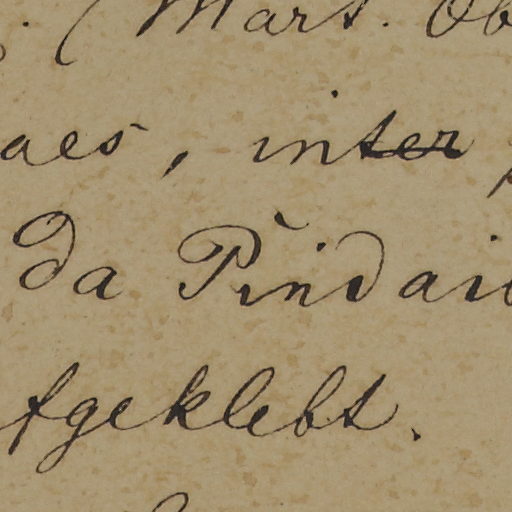 . (Mart. Ob
aes, inter
da Pindaib
fgeklebt.